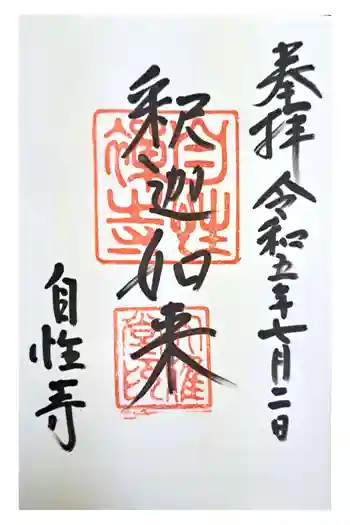 奉拝 令和五年七月二日
釈迦如来
自性寺
自性禅寺